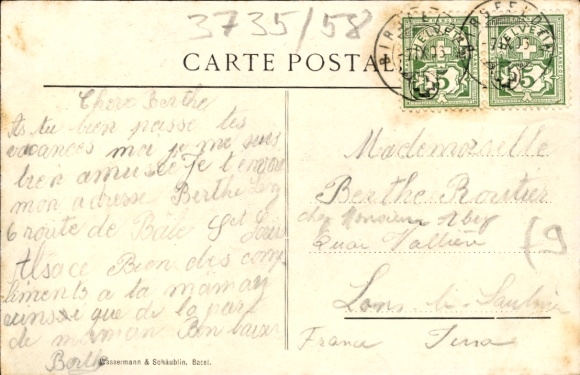 3735/58
CARTE POSTALE
BIRSFELDEN
HELVETIA
5
HELVETIA
5
Chère Berthe
As tu bien passé tes
vacances moi je me suis
bien amusée Je t'envoie
mon adresse Berthe
6 route de Bâle St Louis
Alsace Bien des com
pliments a ta maman
ainssi que de la part
de maman Bon baiser
Berthe
Mademoiselle
Berthe Routier
chez Monsieur
Quai Vallière
Lons-le-Saulnier
France Jura
Wassermann & Schäublin, Basel.